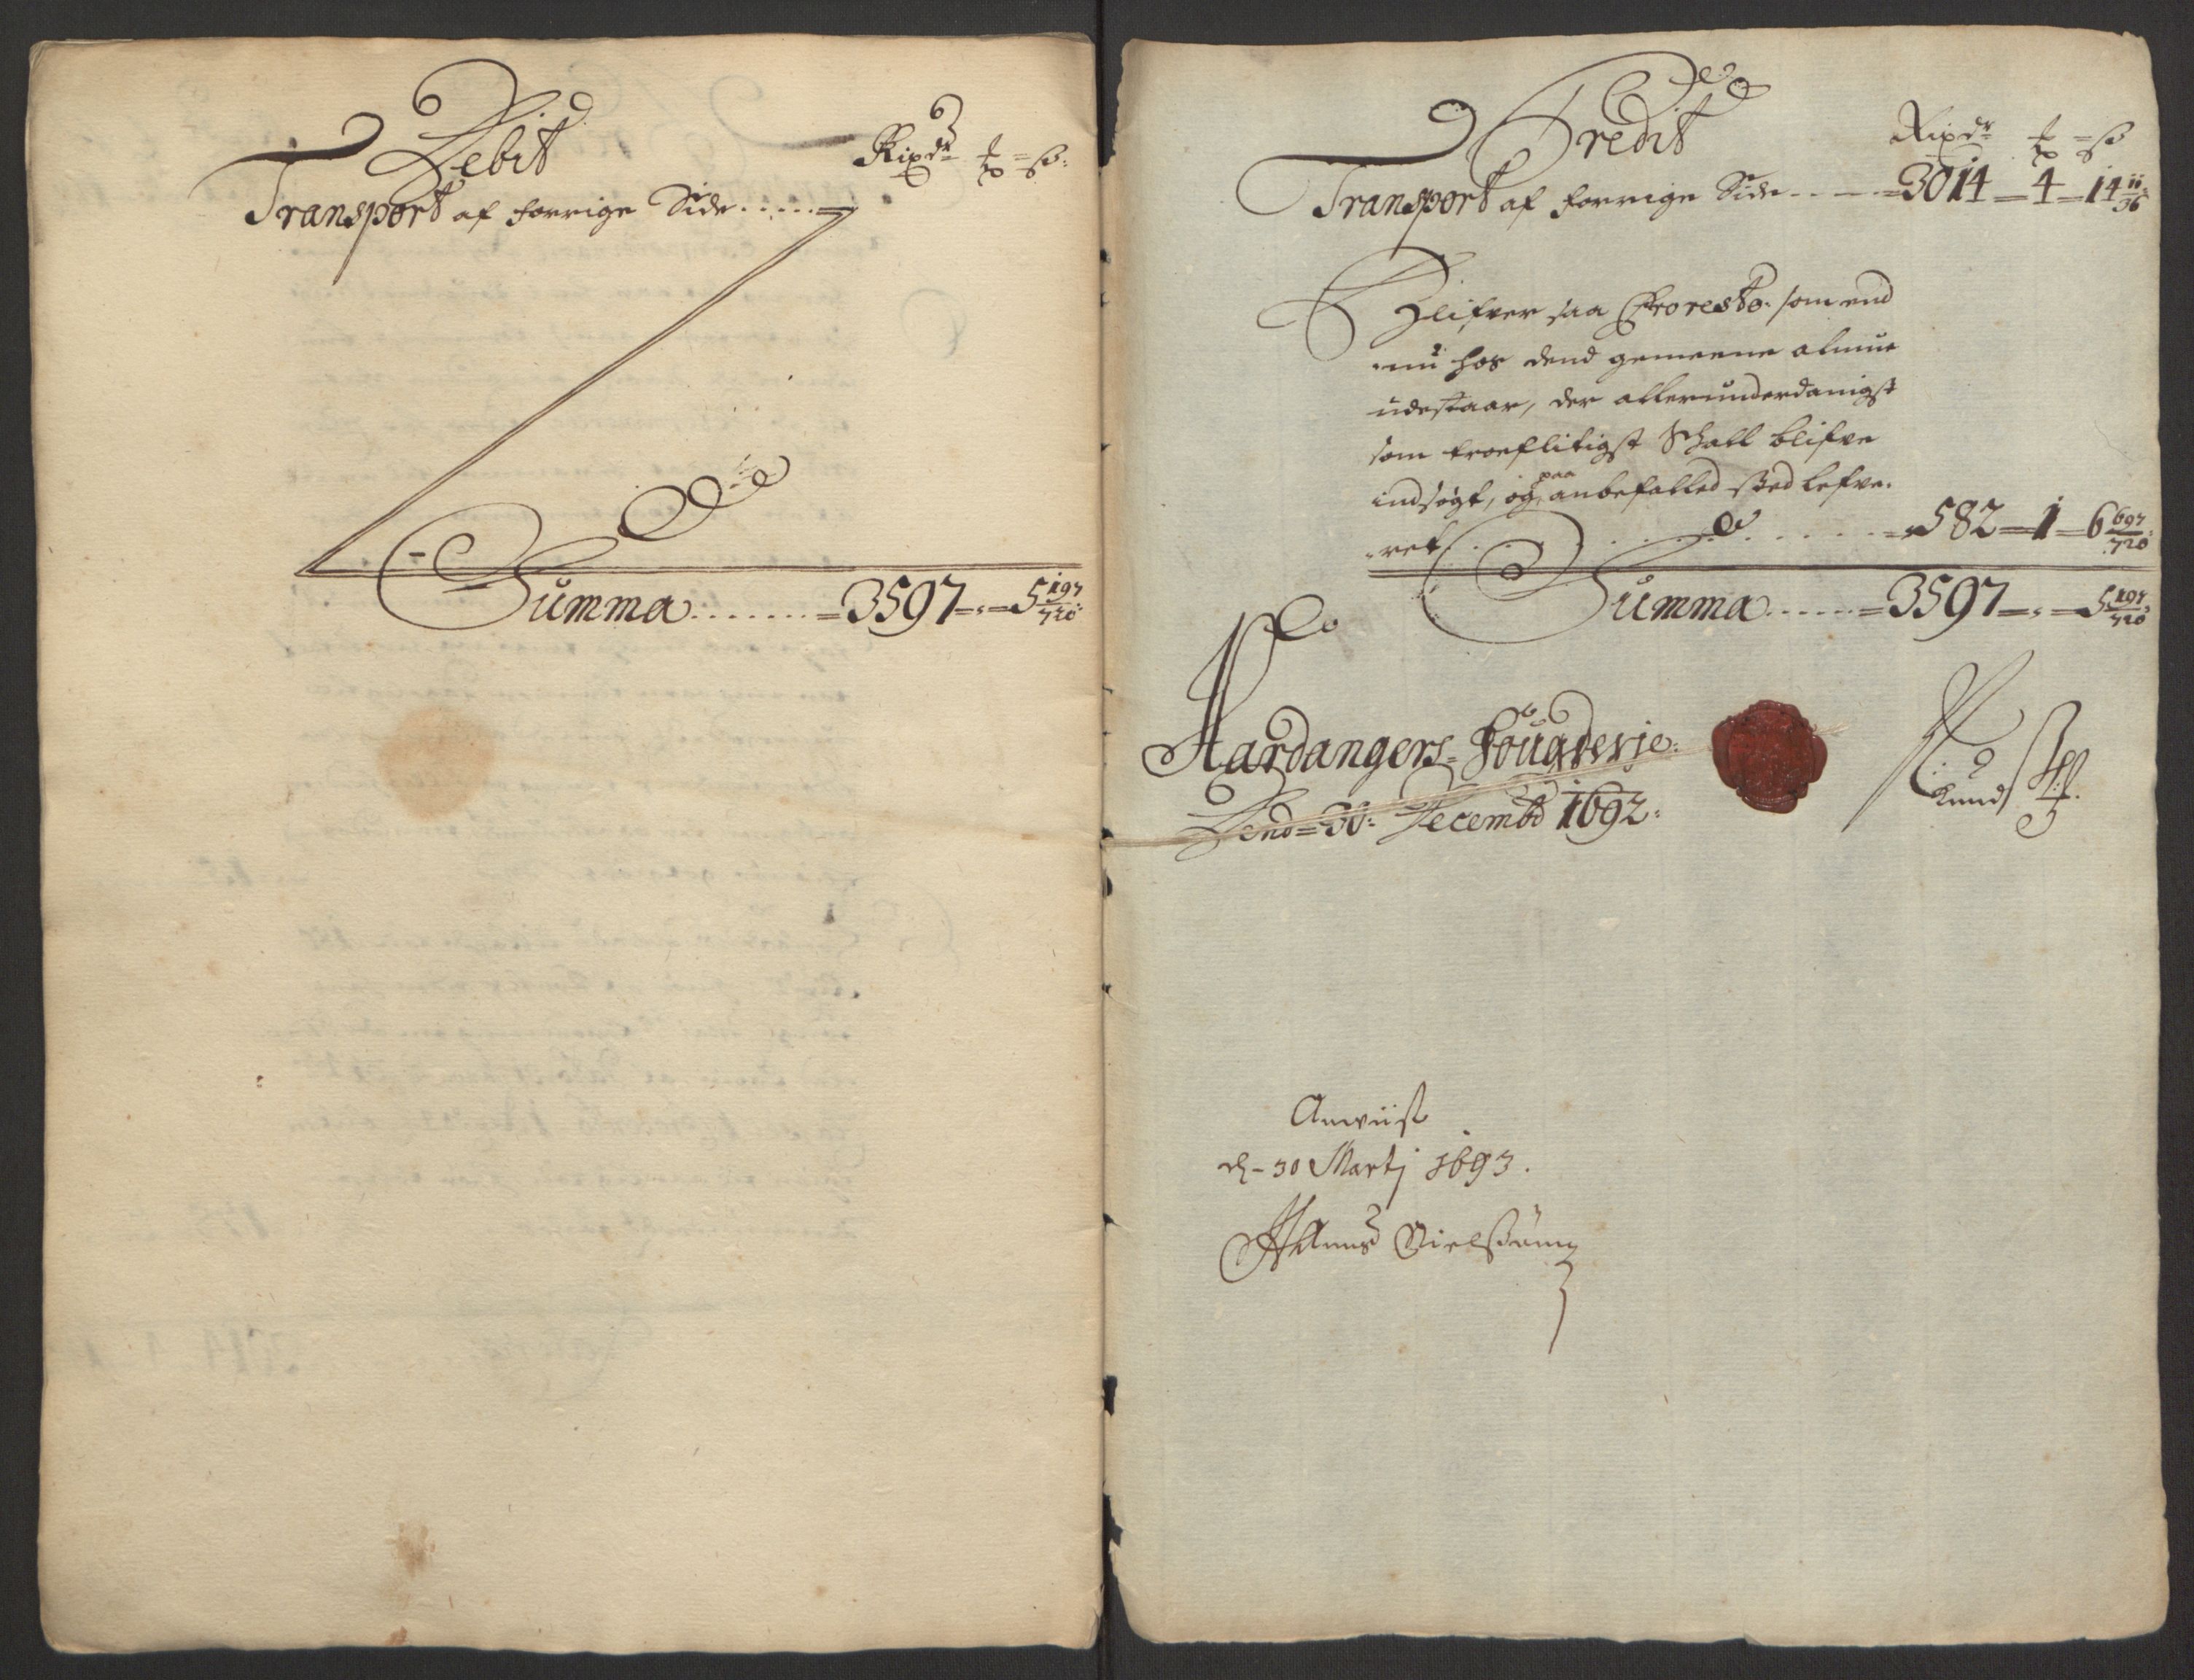 Debit
Rixdr ⸗ ß:
Transport af forrige Side.....=
Summa.......=3597=,=5 197/720:
Credit
Rixdr = ß
Transport af forrige Side.....=3014=4=14 11/36:
Blifver saa Pro resto. som end
nu hos dend gemeene almue
udestaar, der allerunderdanigst
som troeflitigst Schall blifve
indsøgt, og paa anbefalled sted lefve.
ret. . . . . . . . . . =582=1=6 697/720:
Summa......=3597=,=5 197/720:
Hardangers=Fougderje.
Dend=30: Decembr 1692:
Knud
Anviist
d=30 Martj 1693.
Hanns Nielßønn